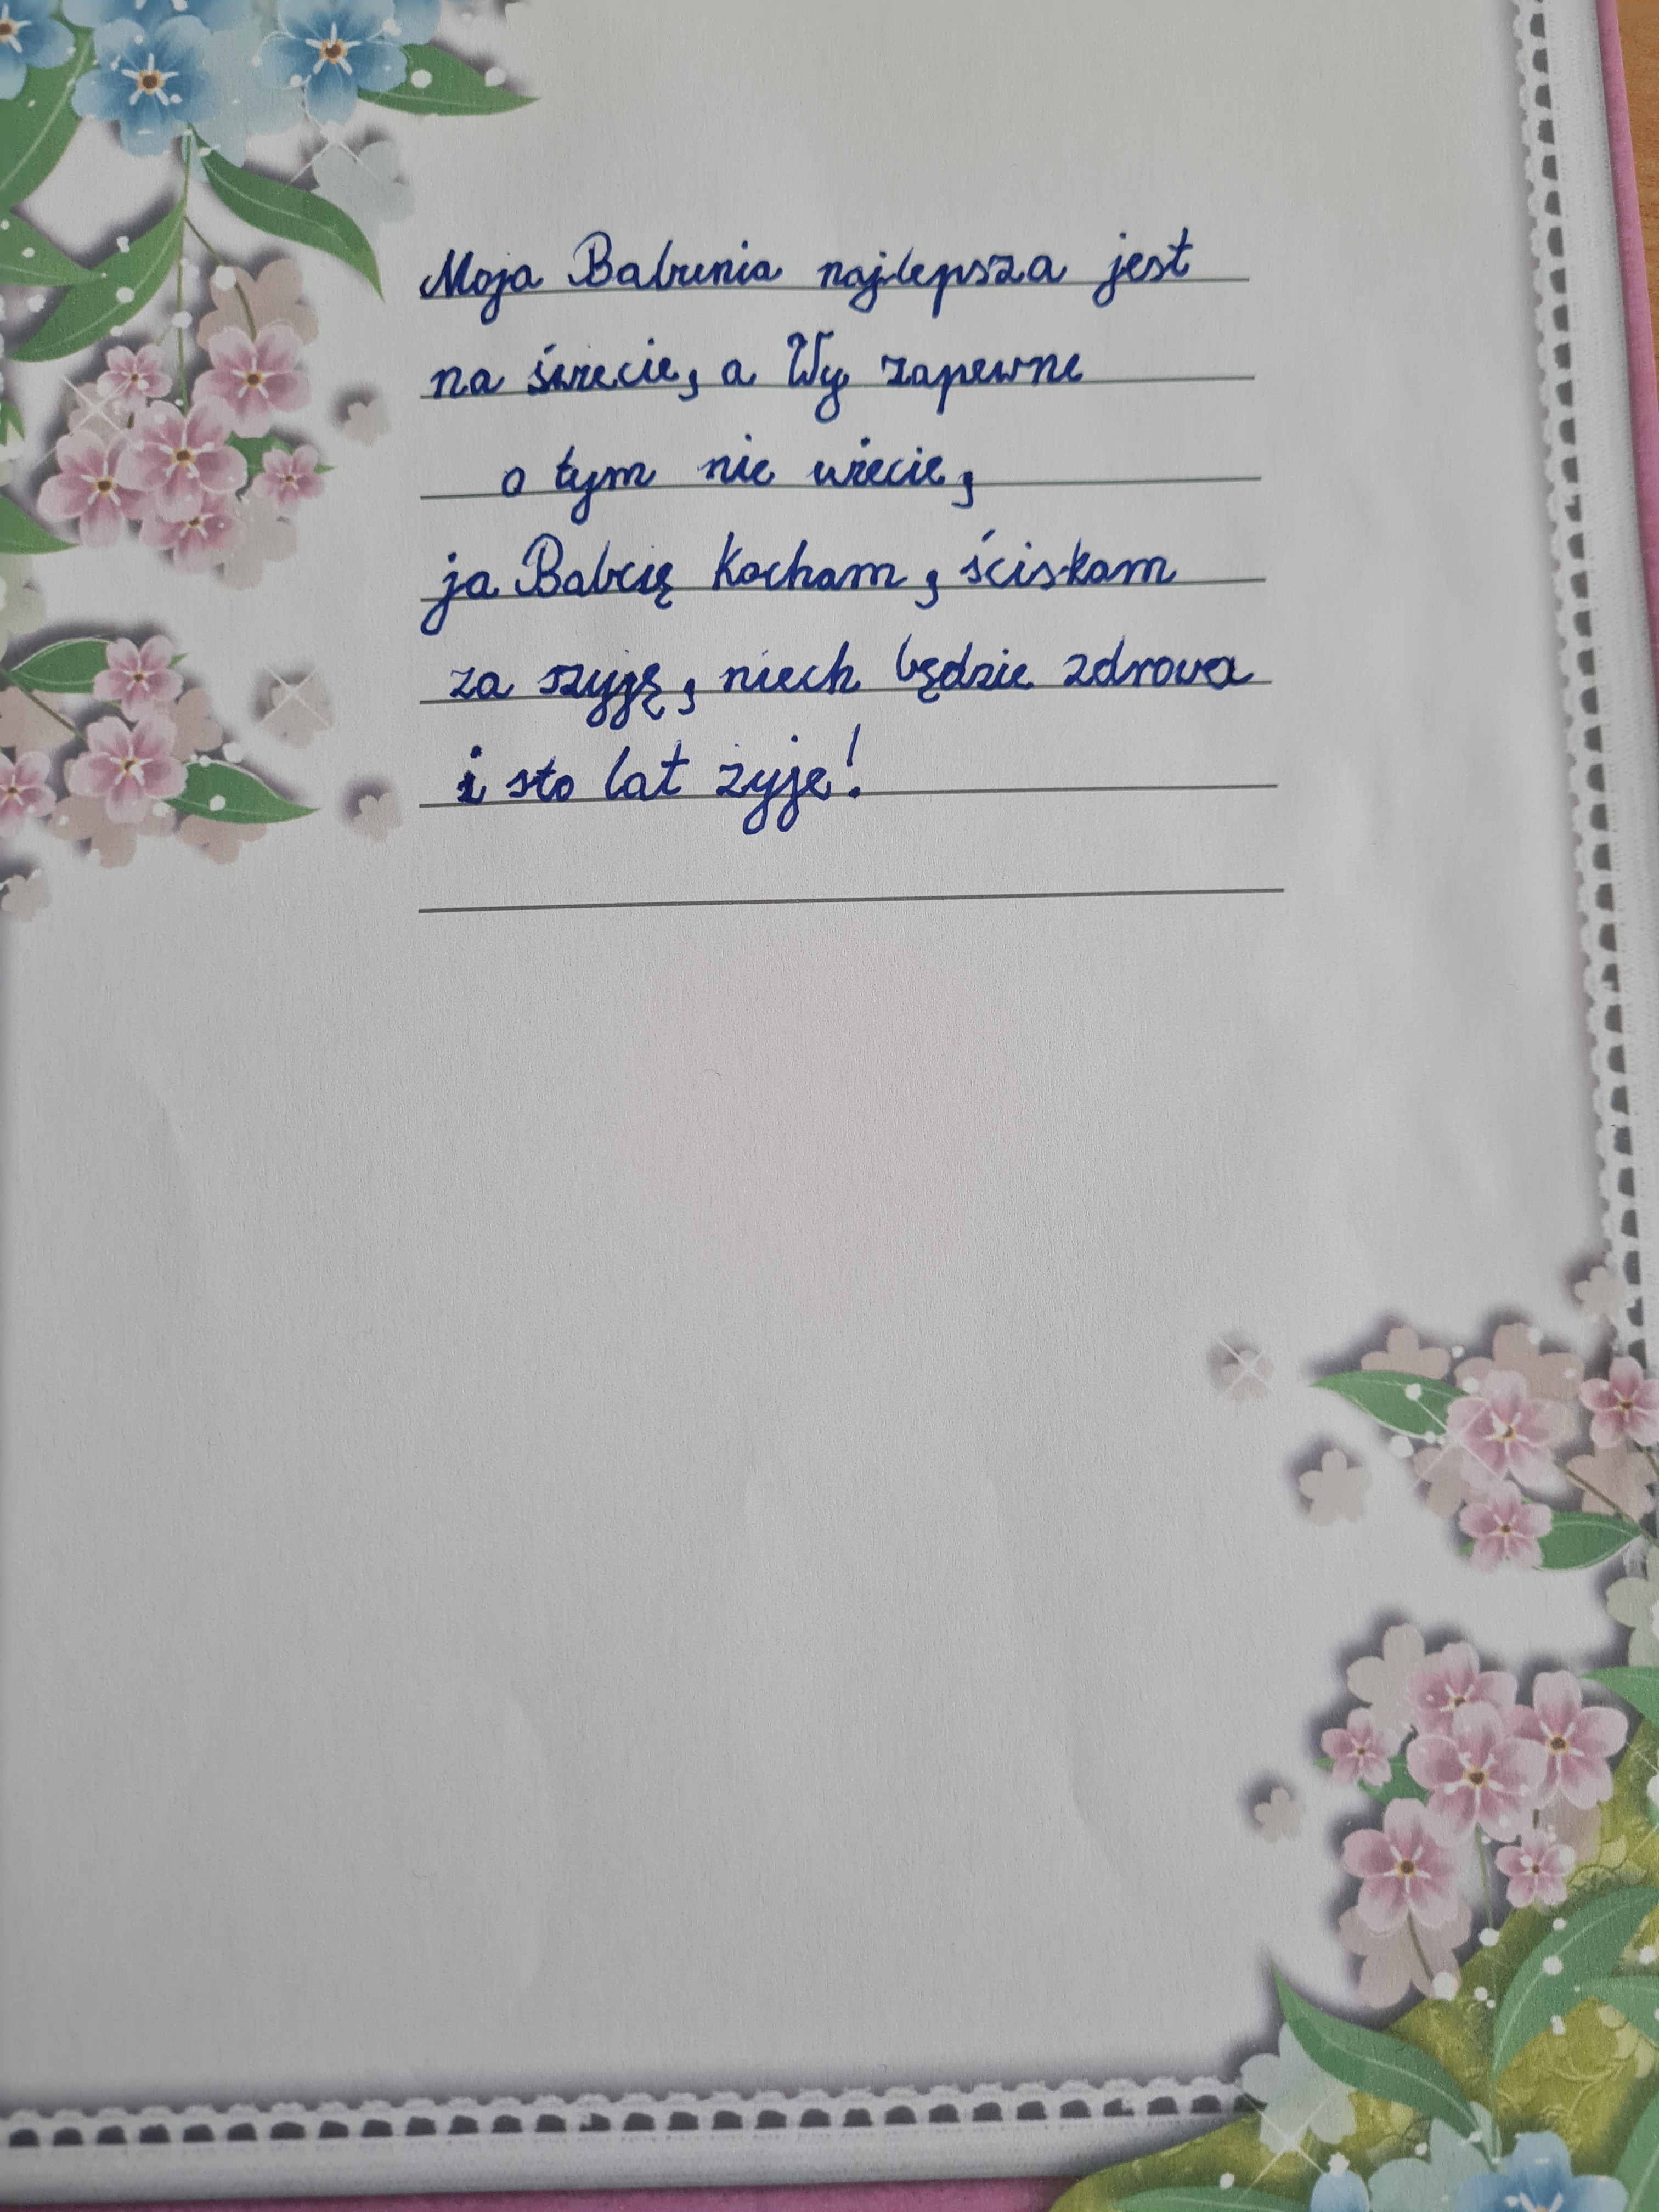 Moja Babunia najlepsza jest
na świecie, a Wy zapewne
o tym nie wiecie,
ja Babcię kocham, ściskam
za szyję, niech będzie zdrowa
i sto lat żyje!